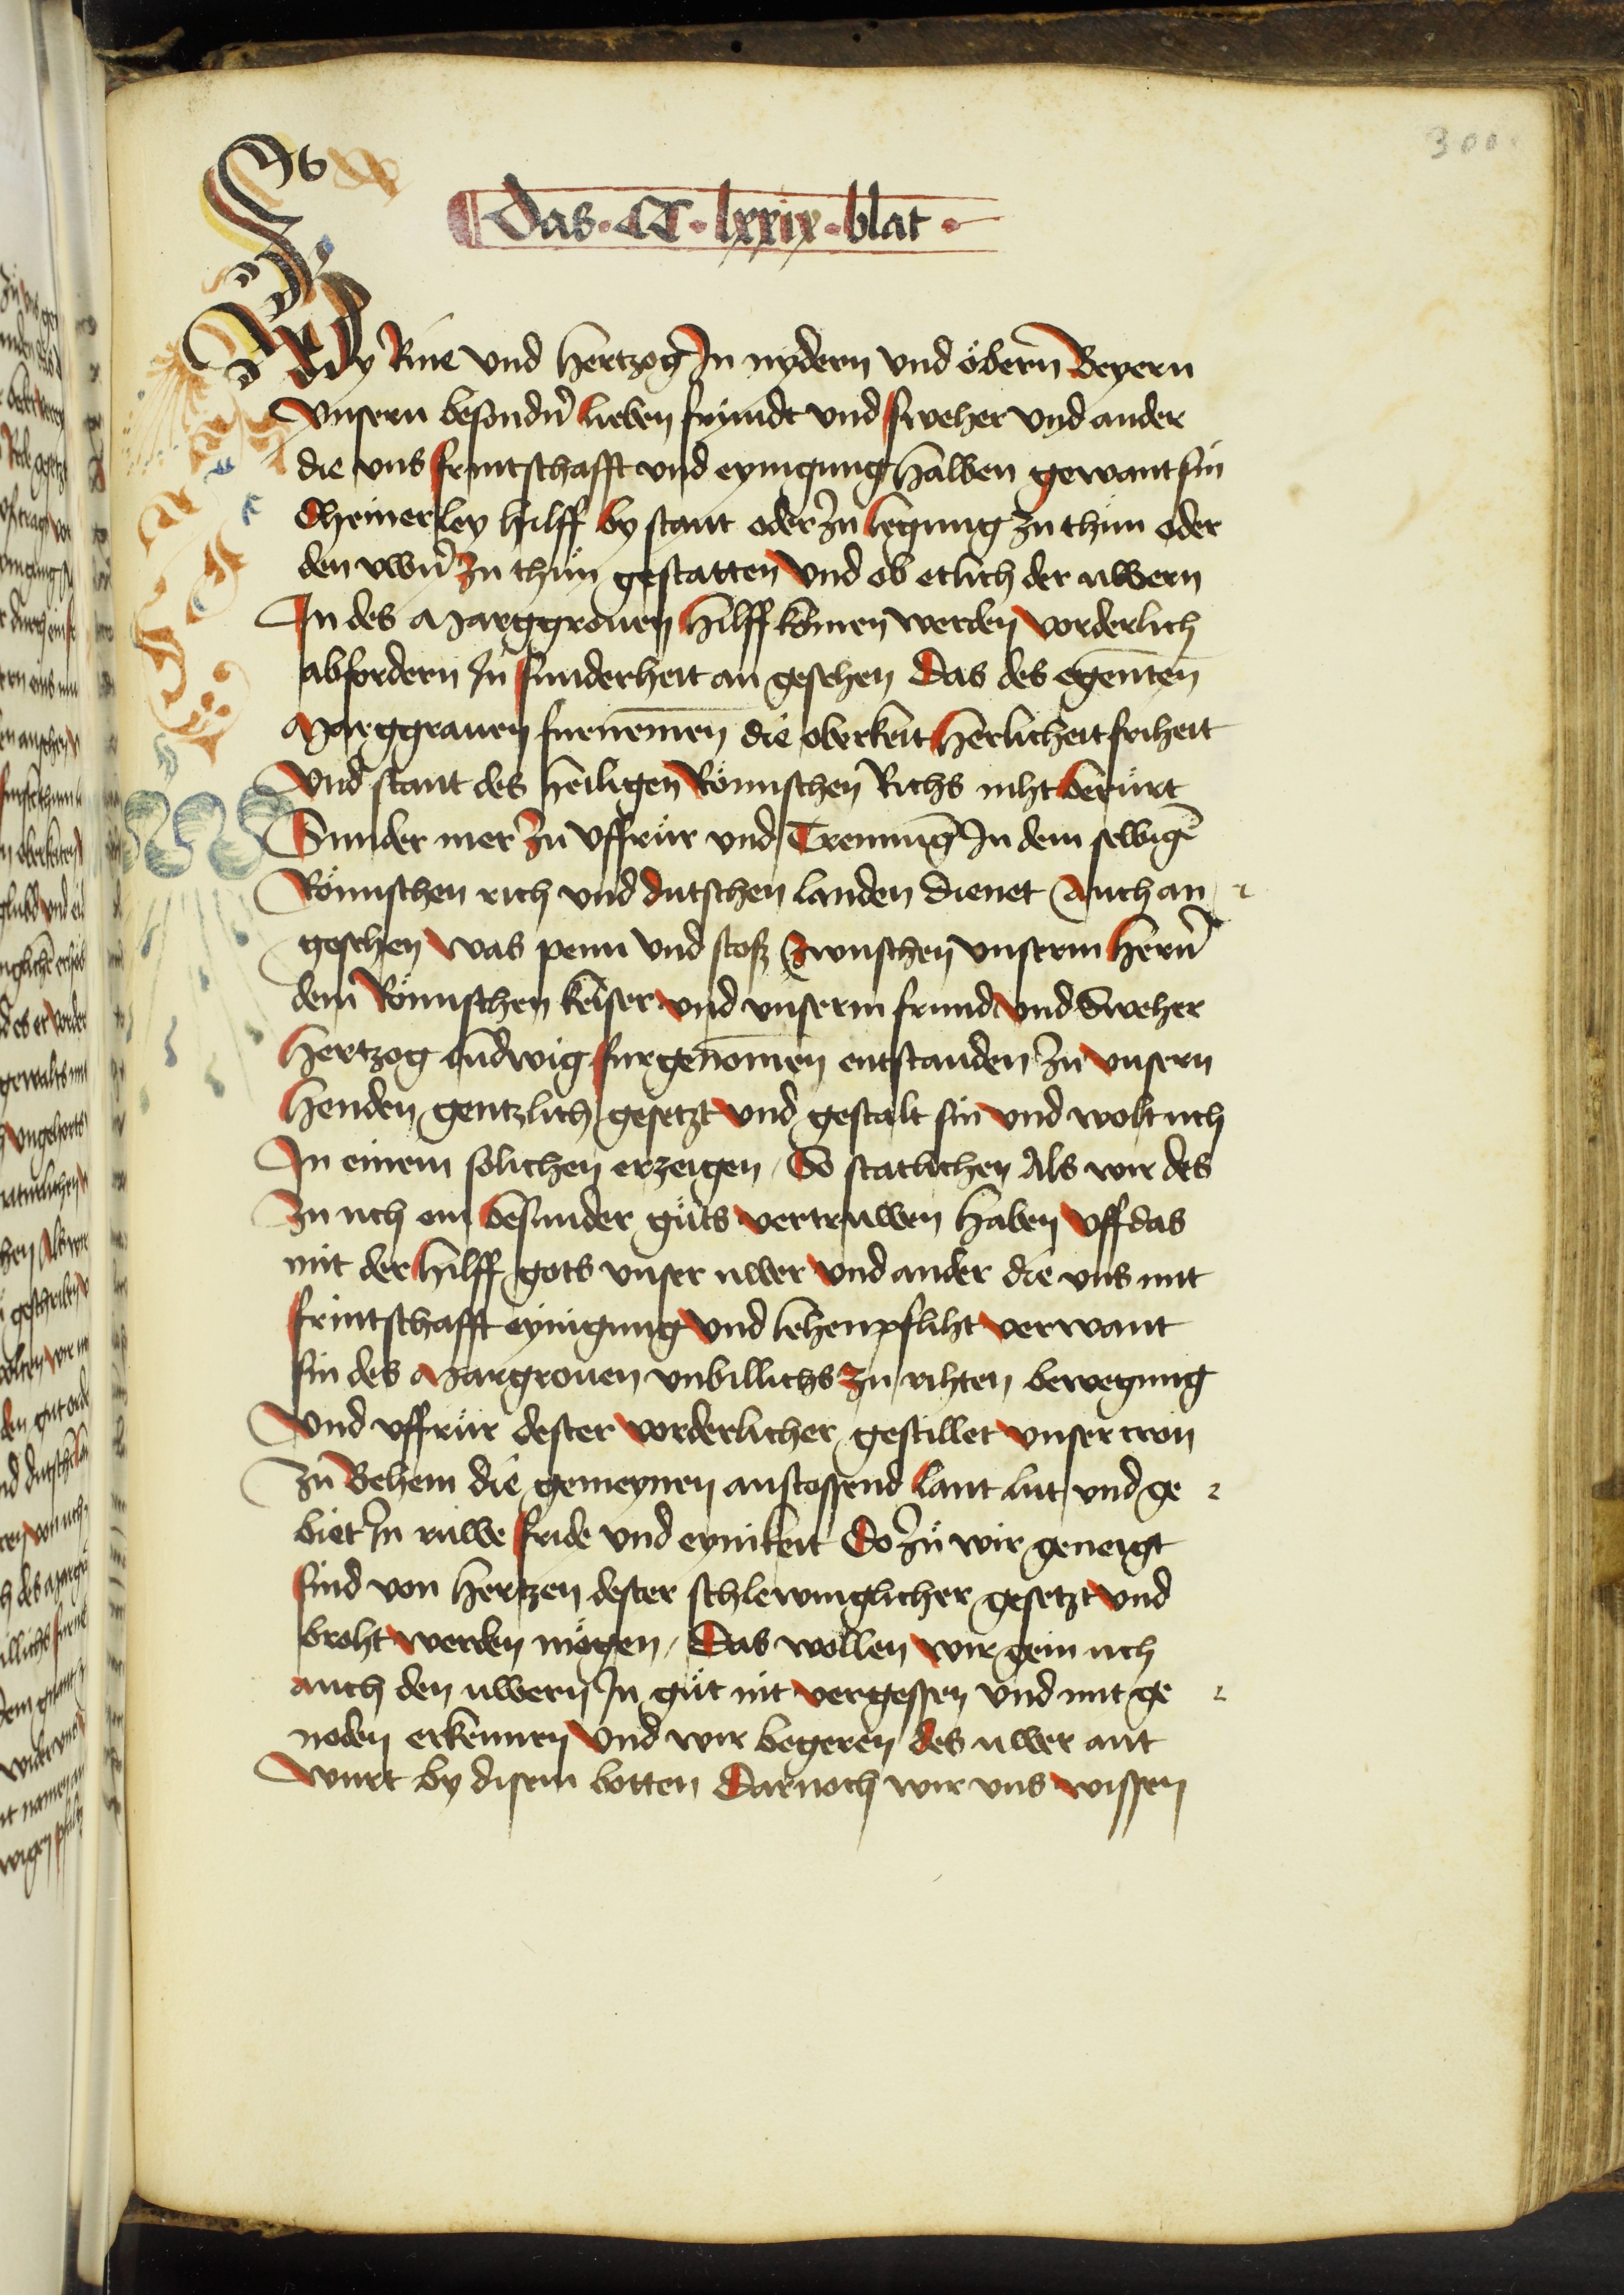 300.
Das · CC · lxxix · blat ·
By Rine vnd hertzog In nydern vnd öbern Beyern
vnsern besondn̄ lieben frundt vnd sweher vnd ander
die vns fruntschafft vnd eynigung halben gewant sin
dheinerley hilff by stant oder zu legung zu thun oder
den uwn̄ zu thun gestatten vnd ob etlich der uwern
In des Marggrouen hilff komen werden vorderlich
abfordern In sunderheit an gesehen das des egenten̄
Marggrauen furnemen die oberkeit herlicheit friheit
vnd stant des heiligen Römischen Richs niht berürt
Sunder mer zu vffrur vnd Trennūg In dem selbigē
Römschen rich vnd dutschen landen dienet Auch an
gesehen was penn vnd stoß zwuschen vnserm hern̄
dem Römischen keiser vnd vnserm frund vnd Sweher
hertzog ludwig furgenomen entstanden zu vnsern
henden gentzlich gesetzt vnd gestalt sin vnd wolt uch
In einem solichen erzeigen / So statlichen Als wir des
zu uch ein besunder guts vertruwen haben vff das
mit der hilff gots vnser uwer vnd ander die vns mit
frintschafft eynigung vnd lehenpfliht verwant
sin des Margrouen vnbillichs zu rihten bewegung
vnd vffrur dester vorderlicher gestillet vnser cron
zu Behem die gemeynen anstossend lant lut vnd ge
biet In ruwe fride vnd eynikeit Do zu wir geneigt
sind von hertzen dester schlewniglicher gesetzt vnd
broht werden mögen / Das wöllen wir gein uch
auch den uwern In gut nit vergessen vnd mit ge
noden erkennen vnd wir begeren des uwer ant
wurt by disem botten Darnoch wir vns wissen